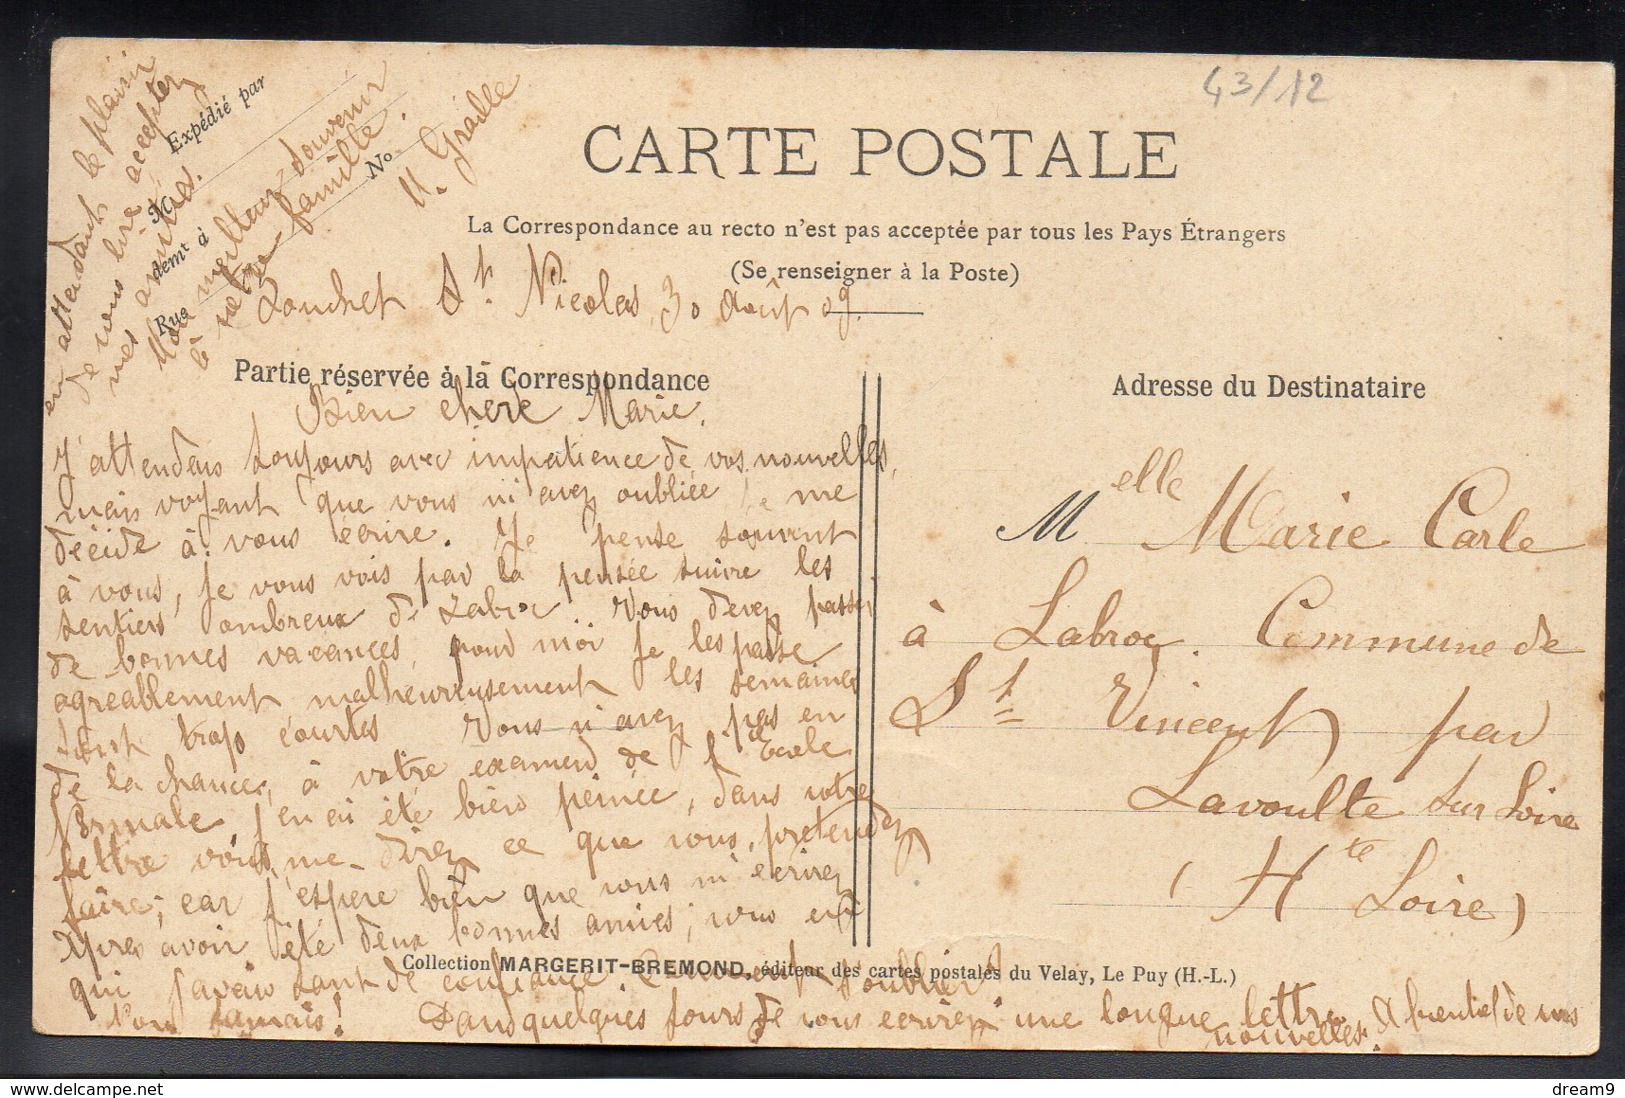 43/12
CARTE POSTALE
La Correspondance au recto n'est pas acceptée par tous les Pays Étrangers
(Se renseigner à la Poste)
Expédié par
M
demt à
Rue
No
St Nicolas 30 Août 09.
Partie réservée à la Correspondance
Adresse du Destinataire
Bien chère Marie.
J'attendais toujours avec impatience de vos nouvelles,
mais voyant que vous m'avez oubliée je me
décide à vous écrire. Je pense souvent
à vous, je vous vois par la pensée suivre les
sentiers ombreux de Labroc Vous devez passer
de bonnes vacances, pour moi je les passe
agréablement malheureusement les semaines
sont trop courtes Vous n'avez pas eu
de la chance, à votre examen de l'Ecole
Normale, j'en ai été bien peinée, dans votre
lettre vous me direz ce que vous, prétendez
faire; car j'espère bien que vous m'écrirez
Après avoir été deux bonnes amies; vous en
qui j'avais tant de confiance. Comment s'oublier
Non jamais! Dans quelques jours je vous écrirez une longue lettre
nouvelles. A bientôt de vos
en attendant le plaisir
de vous lire accepter
mes amitiés.
Mon meilleur souvenir
à votre famille.
M. Graille
Melle Marie Carle
à Labroc. Commune de
St Vincent par
Lavoulte sur Loire
(Hte Loire)
Collection MARGERIT-BREMOND, éditeur des cartes postales du Velay, Le Puy (H.-L.)
dream9